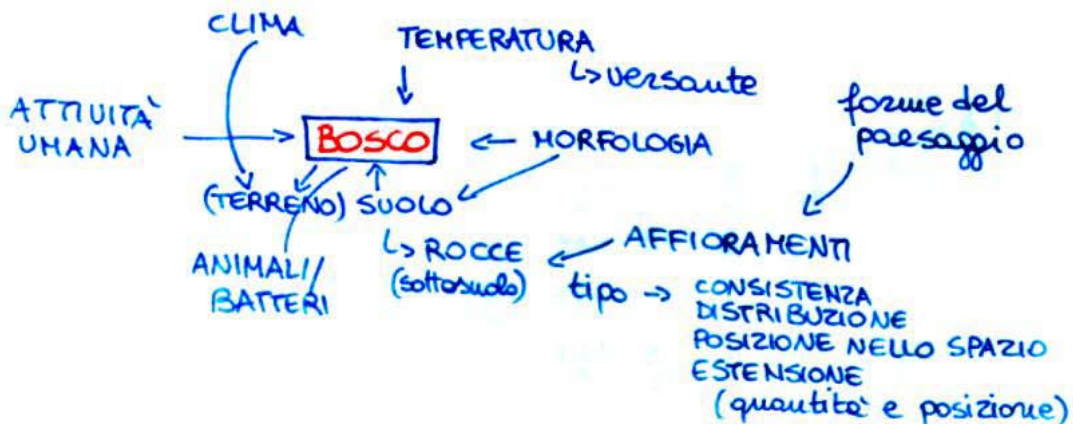 CLIMA
TEMPERATURA
↳ versante
ATTIVITÀ
UMANA
BOSCO
MORFOLOGIA
forme del
paesaggio
(TERRENO) SUOLO
ANIMALI/
BATTERI
↳ ROCCE
(sottosuolo)
AFFIORAMENTI
tipo → CONSISTENZA
DISTRIBUZIONE
POSIZIONE NELLO SPAZIO
ESTENSIONE
(quantità e posizione)